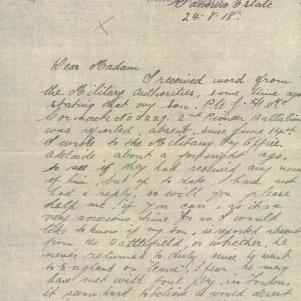 Estate
24-8-18.
Dear Madam
I received word from
the Military Authorities, some time ago
stating that my son. Pte J. H. Mc
Cormack No 3229. 2nd Pioneer Battalion
was reported, absent, since June 14th
I wrote to the Military Office
Adelaide about a fortnight ago,
to see if they had received any news
of him, but up to date I have not
had a reply, so will you please
help me, if you can, as it is a
very anxious time for us I would
like to know if my son, is reported absent
from the Battlefield, or whether, he
never returned to duty, since he went
to England on leave, I fear he may
have met with foul play, in London,
it seems hard to believe he would desert